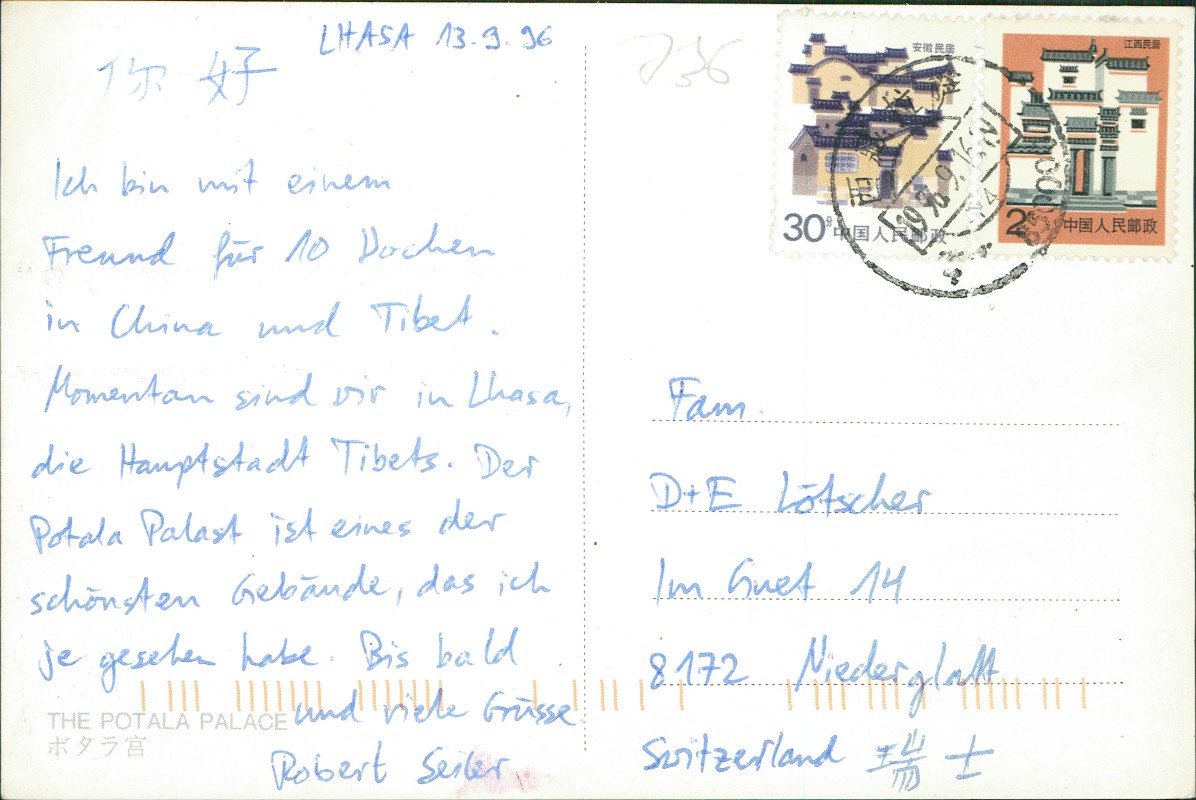 LHASA 13.9.96
你好
Ich bin mit einem
Freund für 10 Wochen
in China und Tibet.
Momentan sind wir in Lhasa,
die Hauptstadt Tibets. Der
Potala Palast ist eines der
schönsten Gebäude, das ich
je gesehen habe. Bis bald
und viele Grüsse.
Robert Seiler
THE POTALA PALACE
ポタラ宮
736
安徽民居
30分 中国人民邮政
江西民居
2 中国人民邮政
西藏拉萨
1996.9.16
Fam.
D+E Lötscher
Im Guet 14
8172 Niederglatt
Switzerland 瑞士